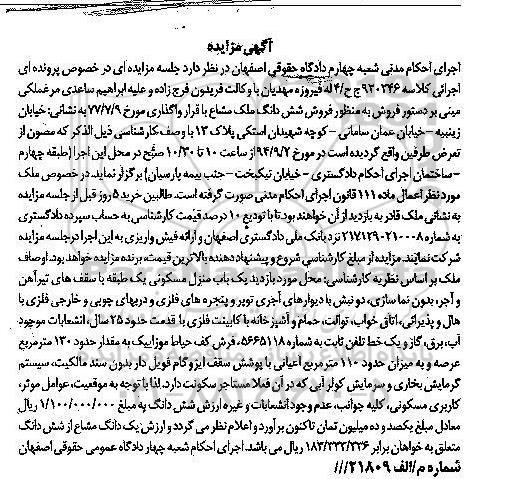 آگهی مزایده
اجرای احکام مدنی شعبه چهارم دادگاه حقوقی اصفهان در نظر دارد جلسه مزایده ای در خصوص پرونده ای
اجرائی کلاسه ۹۲۰۲۴۶ ج ح/۴ له فیروزه مهدیان با وکالت فریدون فرج زاده و علیه ابراهیم ساعدی مرغملکی
مبنی بر دستور فروش به منظور فروش شش دانگ ملک مشاع با قرار واگذاری مورخ ۷۷/۷/۹ به نشانی: خیابان
زینبیه – خیابان عمان سامانی – کوچه شهیدان استکی پلاک ۱۳ با وصف کارشناسی ذیل الذکر که مصون از
تعرض طرفین واقع گردیده است در مورخ ۹۴/۹/۲ از ساعت ۱۰ تا ۱۰/۳۰ صبح در محل این اجرا (طبقه چهارم
– ساختمان اجرای احکام دادگستری – خیابان نیکبخت – جنب بیمه پارسیان) برگزار نماید. در خصوص ملک
مورد نظر اعمال ماده ۱۱۱ قانون اجرای احکام مدنی صورت گرفته است. طالبین خرید ۵ روز قبل از جلسه مزایده
به نشانی ملک قادر به بازدید از آن خواهند بود تا با تودیع ۱۰ درصد قیمت کارشناسی به حساب سپرده دادگستری
به شماره ۲۱۷۱۲۹۰۲۱۰۰۸ نزد بانک ملی دادگستری اصفهان و ارائه فیش واریزی به این اجرا در جلسه مزایده
شرکت نمایند. مزایده از مبلغ کارشناسی شروع و پیشنهاد دهنده بالاترین قیمت، برنده مزایده خواهد بود. اوصاف
ملک بر اساس نظریه کارشناسی: محل مورد بازدید یک باب منزل مسکونی یک طبقه با سقف های تیرآهن
و آجر، بدون نما سازی، دو نبش با دیوارهای آجری توپر و پنجره های فلزی و دربهای چوبی و خارجی فلزی با
هال و پذیرائی، اتاق خواب، توالت، حمام و آشپزخانه با کابینت فلزی با قدمت حدود ۲۵ سال، انشعابات موجود
آب، برق، گاز و یک خط تلفن ثابت به شماره ۵۶۶۵۱۱۸، فرش کف حیاط موزاییک به مقدار حدود ۱۳۰ مترمربع
عرصه و به میزان حدود ۱۱۰ مترمربع اعیانی با پوشش سقف ایزوگام فویل دار بدون سند مالکیت، سیستم
گرمایش بخاری و سرمایش کولر آبی که در آن فعلا مستاجر سکونت دارد. لذا با توجه به موقعیت، عوامل موثر،
کاربری مسکونی، کلیه جوانب، عدم وجود انشعابات و غیره ارزش شش دانگ به مبلغ ۱/۱۰۰/۰۰۰/۰۰۰ ریال
معادل مبلغ یکصد و ده میلیون تمان تاکنون برآورد و اعلام نظر می گردد و ارزش یک دانگ مشاع از شش دانگ
متعلق به خواهان برابر ۱۸۳/۳۳۳/۳۳۶ ریال می باشد. اجرای احکام شعبه چهار دادگاه عمومی حقوقی اصفهان
شماره م/الف ۲۱۸۰۹///